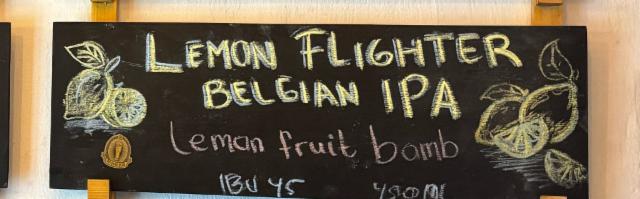 LEMON FLIGHTER
BELGIAN IPA
Lemon fruit bomb
IBU 45